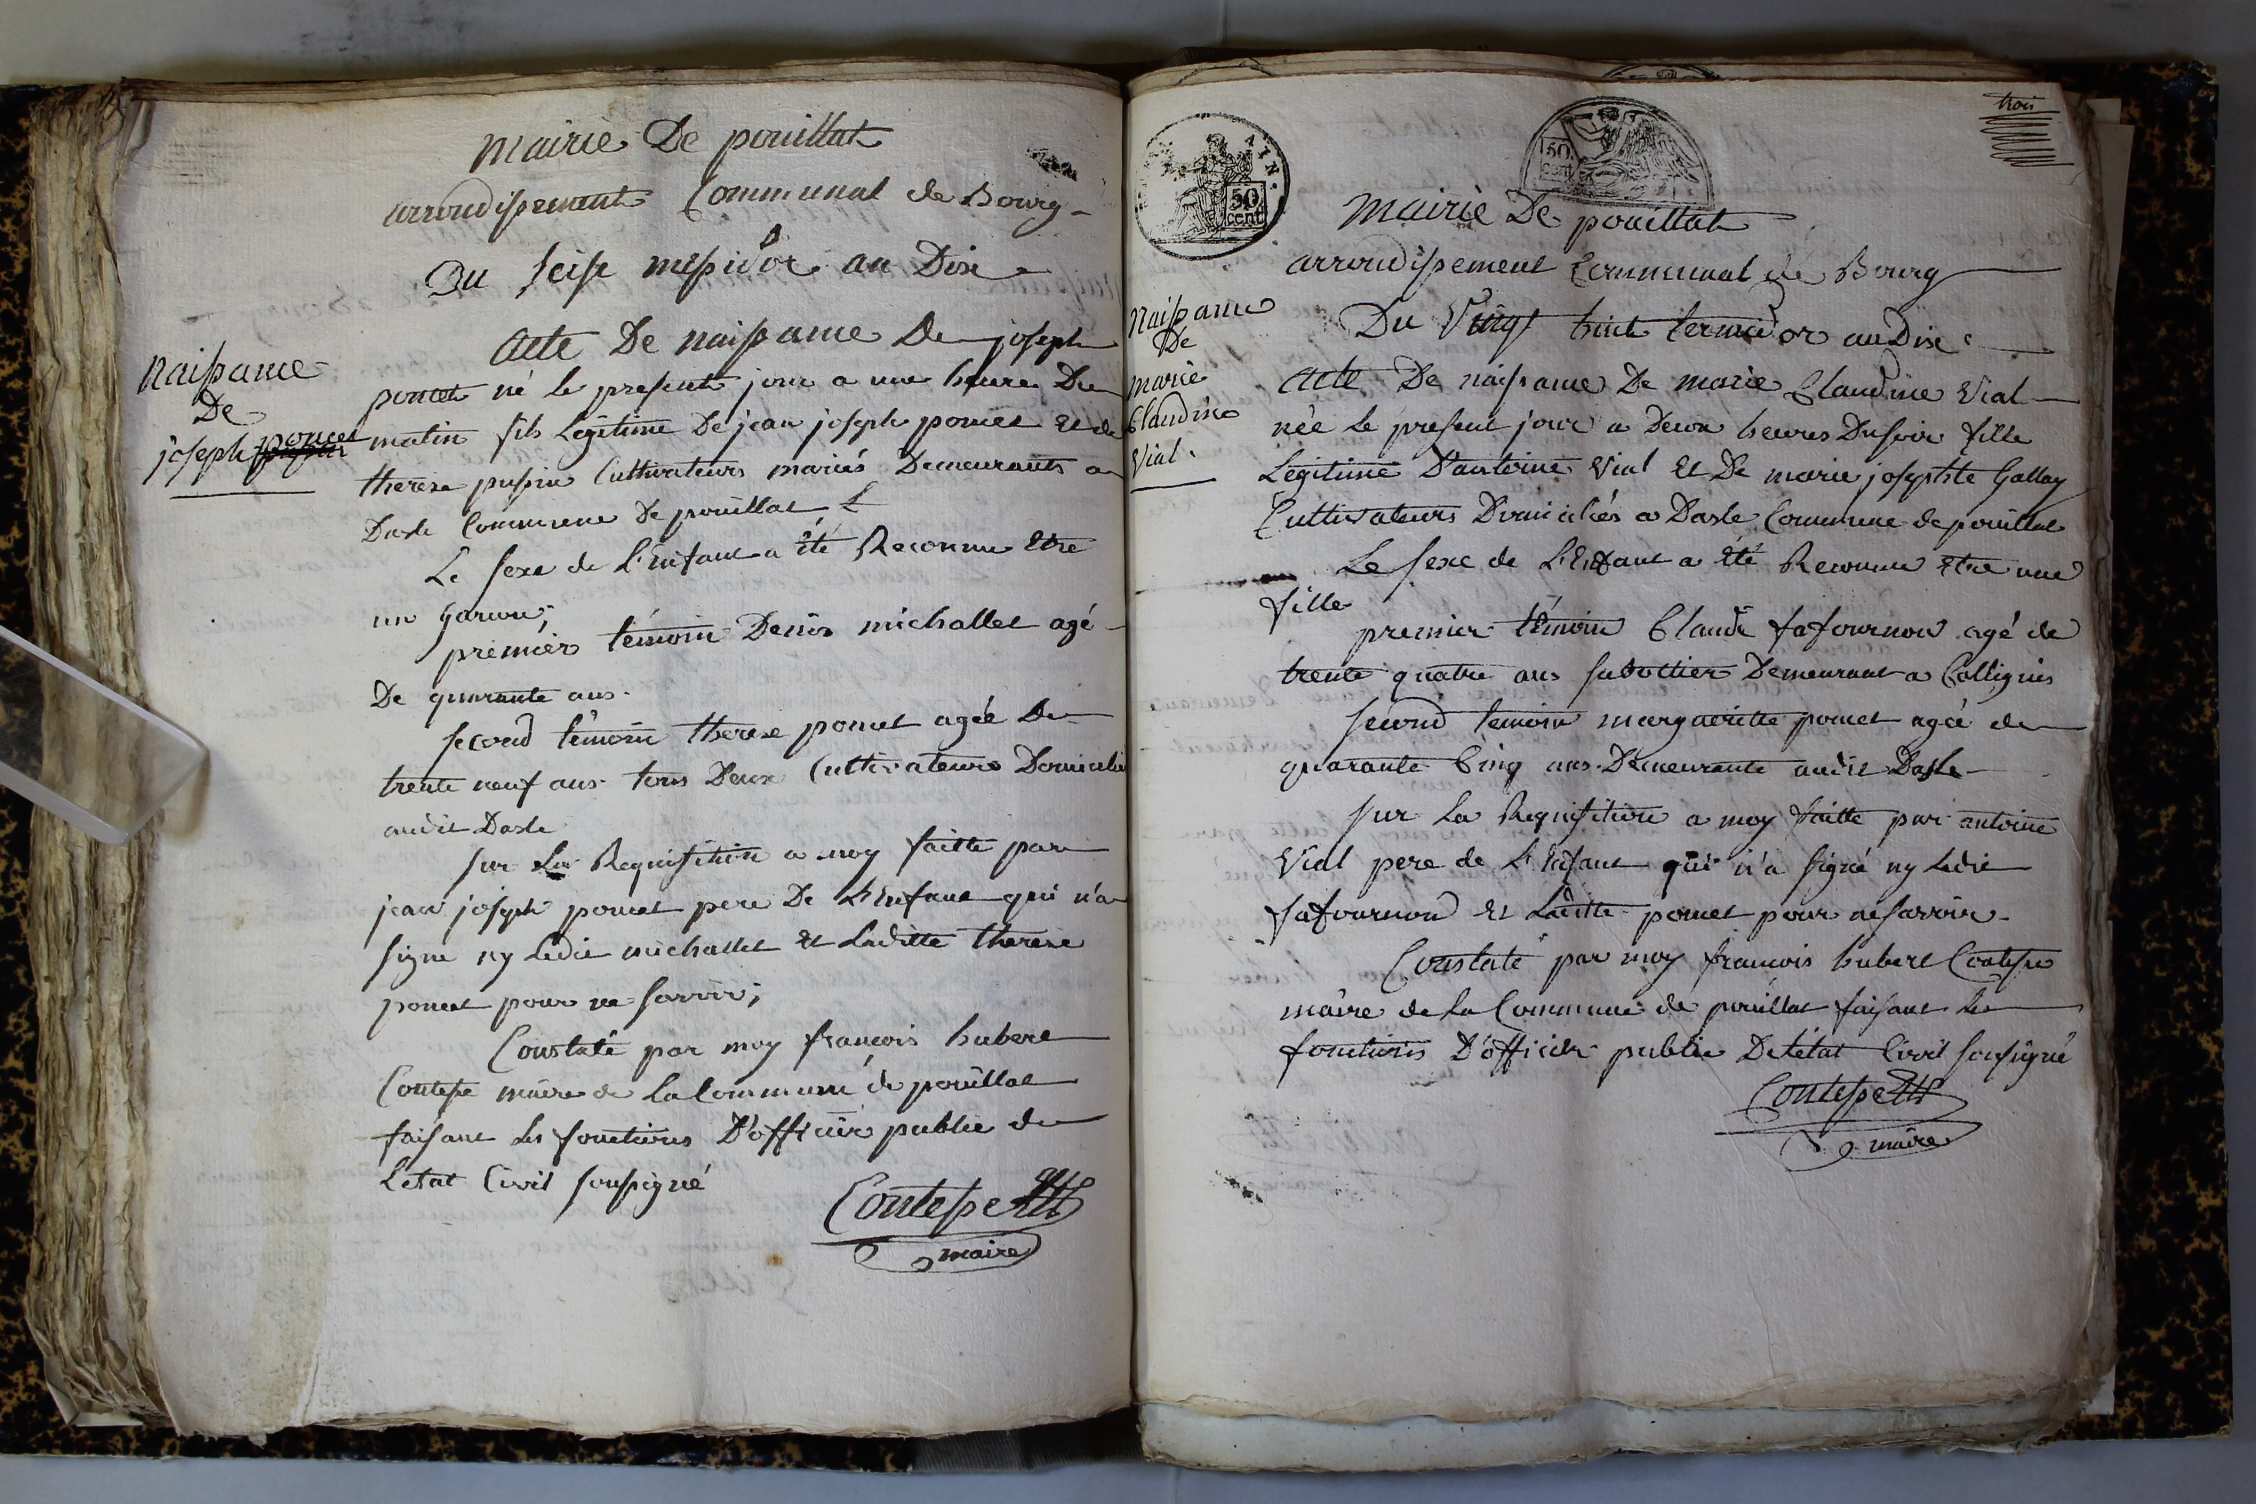 mairie De pouillat
arrondissement Communal de Bourg
Du seise messidor an Dix
Naissance
De
joseph poncet
Acte De naissance De joseph
poncet né le present jour a une heure Du
matin fils Légitime De jean joseph poncet Et de
therese pupin Cultivateurs mariés Demeurants a
Dasle Commune De pouillat
Le sexe de L'Enfant a été Reconnu Etre
un garcon;
premier témoin Denis michallet agé
De quarante ans.
second témoin therese poncet agée De
trente neuf ans tous Deux Cultivateurs Domicilié
audit Dasle
sur La Requisition a moy faitte par
jean joseph poncet pere De L'Enfant qui n'a
signé ny Ledit michallet Et Laditte therese
poncet pour ne savoir;
Constaté par moy françois hubert
Contesse maire de La Commune de pouillat
faisant Les fonctions D'officier public de
L'etat Civil soussigné
Contesse
maire
trois
AIN.
50
cent
50
mairie De pouillat
arrondissement Communal de Bourg
Du Vingt huit termidor an Dix
Naissance
De
marie
Claudine
Vial.
Acte De naissance De marie Claudine Vial
née le present jour a Deux heures Du soir fille
Légitime D'antoine Vial Et De marie josephte Gallay
Cultivateurs Domiciliés a Dasle Commune de pouillat
Le sexe de L'Enfant a été Reconnu Etre une
fille
premier témoin Claude fafournou agé de
trente quatre ans sabottier Demeurant a Collignis
second temoin margueritte poncet agée de
quarante Cinq ans Demeurante audit Dasle
sur La Requisition a moy faitte par antoine
Vial pere de L'Enfant qui n'a signé ny Ledit
fafournou Et Laditte poncet pour ne savoir
Constaté par moy françois hubert Contesse
maire de La Commune de pouillat faisant Les
fonctions D'officier public De L'état Civil soussigné
Contesse
maire